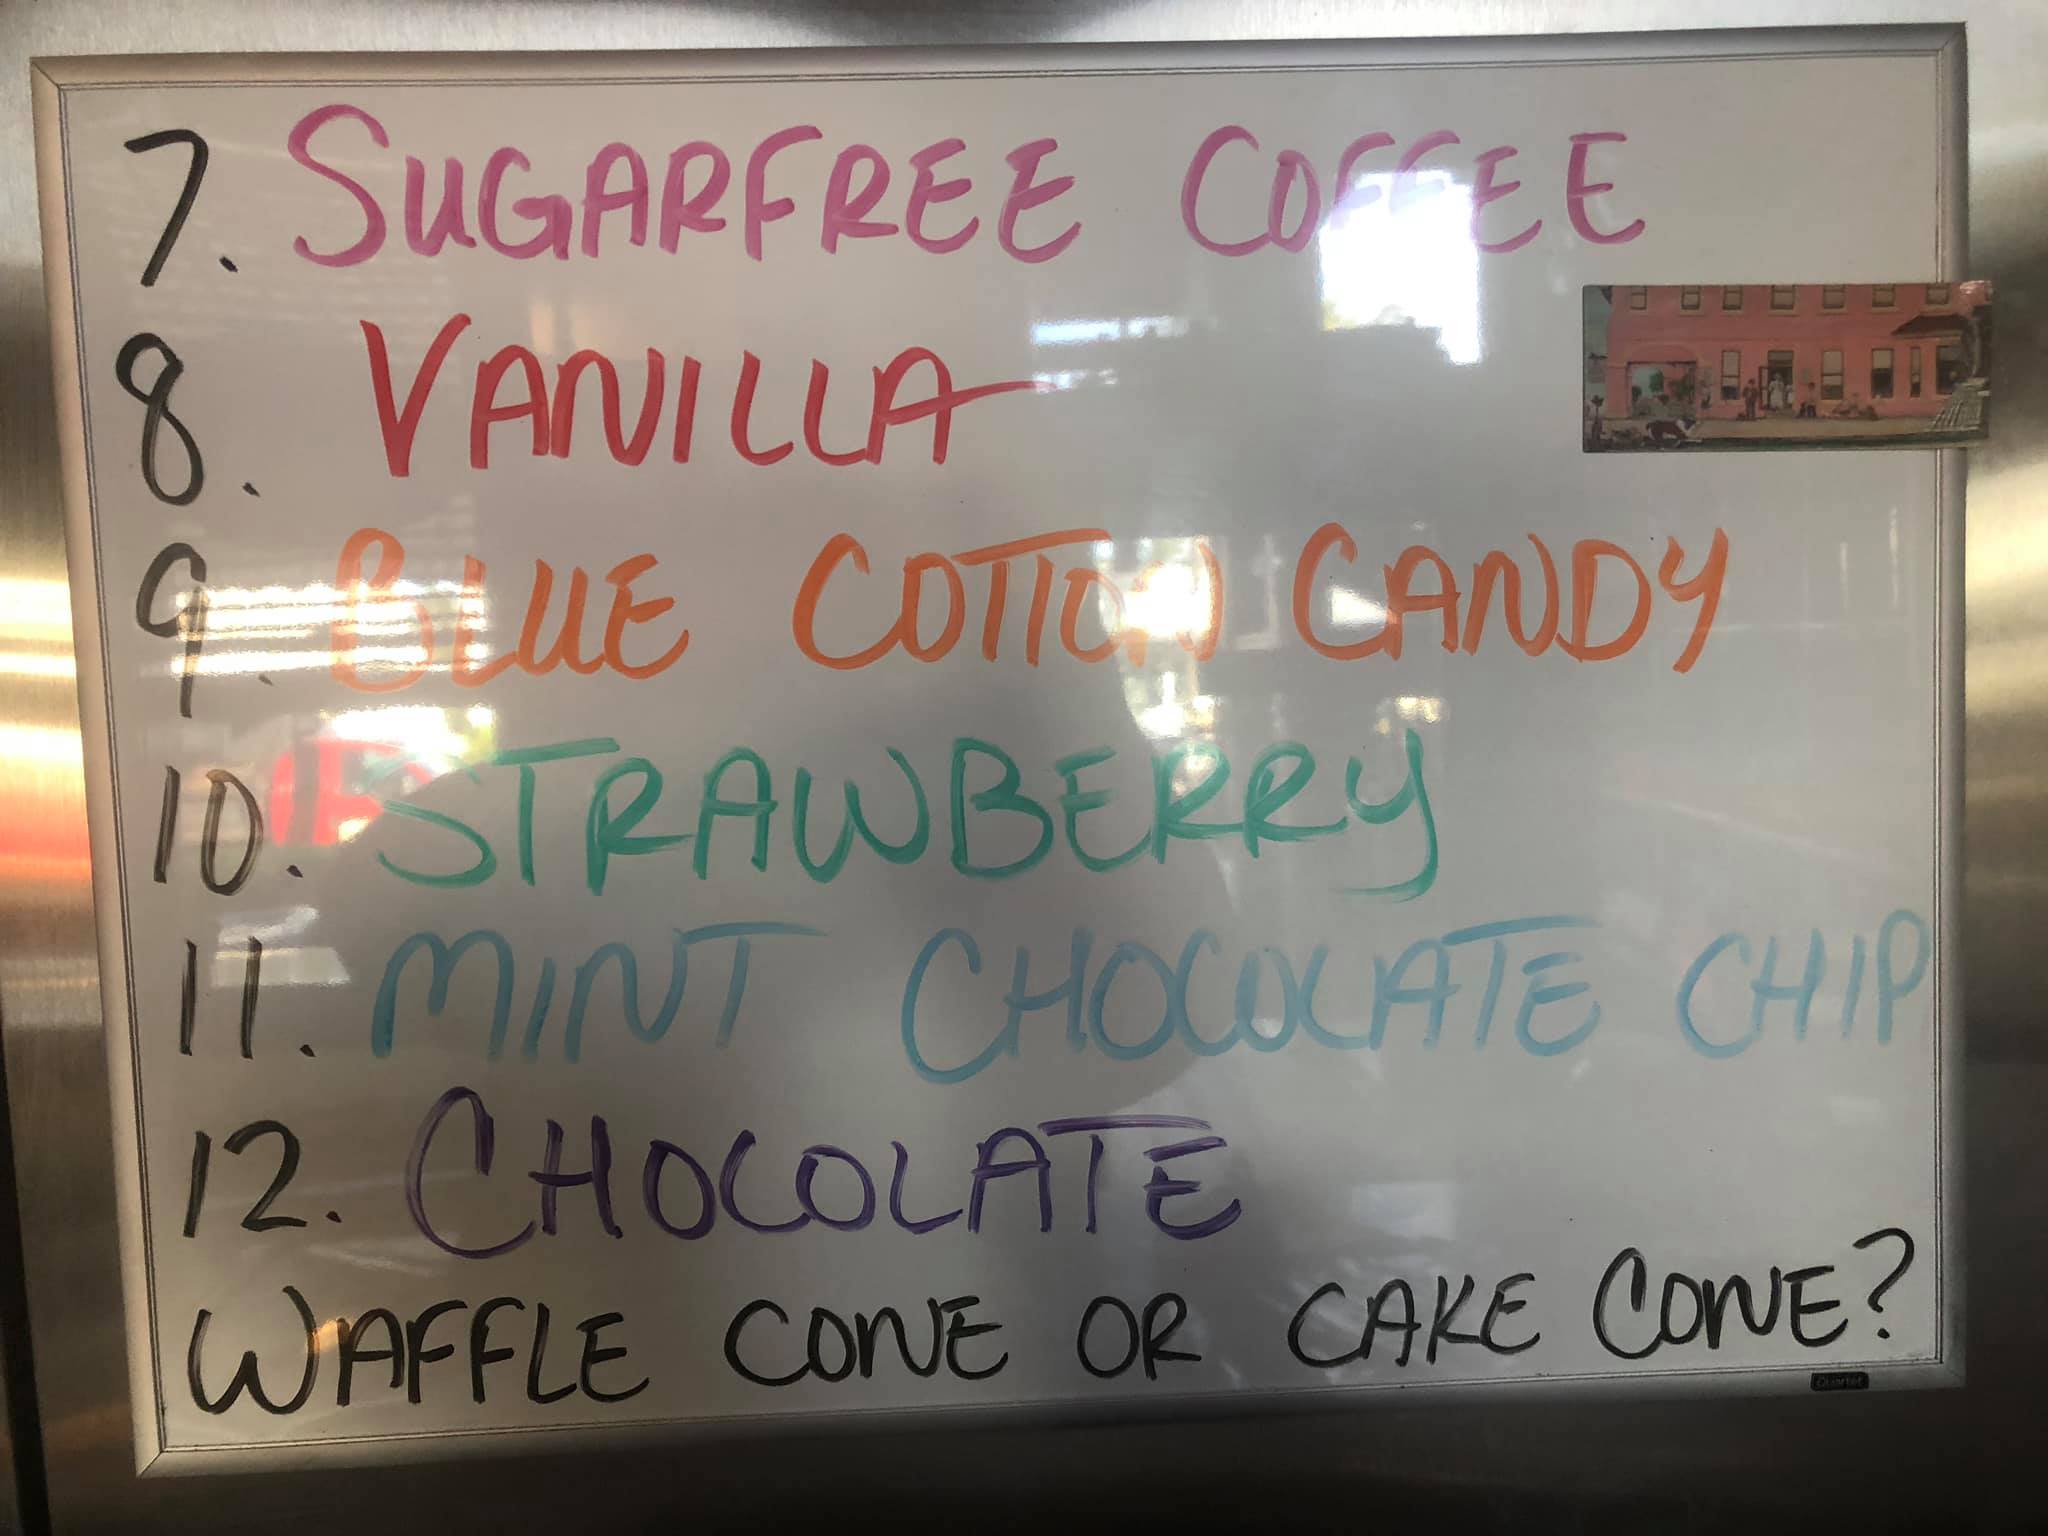 7. SUGARFREE COFFEE
8. VANILLA
9. BLUE COTTON CANDY
10. STRAWBERRY
11. MINT CHOCOLATE CHIP
12. CHOCOLATE
WAFFLE CONE OR CAKE CONE?
Quartet